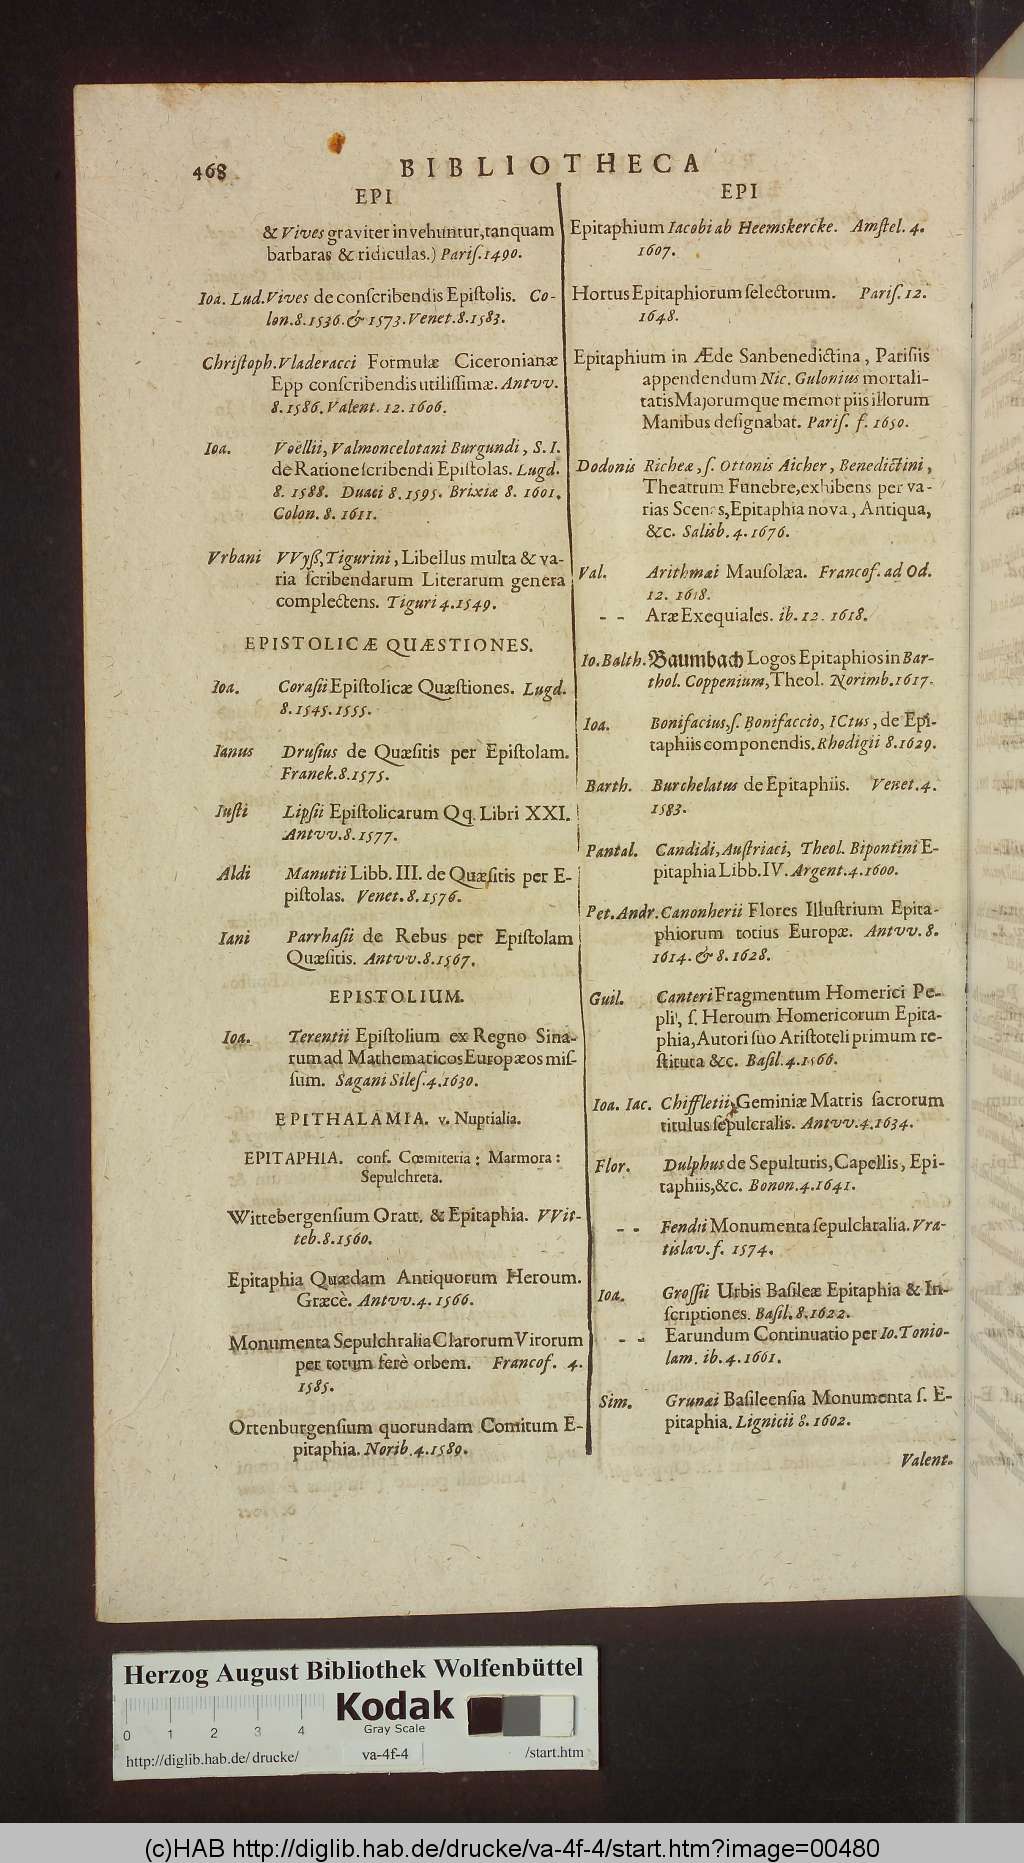 468
BIBLIOTHECA
EPI
& Vives graviter invehuntur, tanquam
barbaras & ridiculas.) Pariſ. 1490.
Ioa. Lud. Vives de conſcribendis Epiſtolis. Co-
lon. 8. 1536. & 1573. Venet. 8. 1583.
Chriſtoph. Vladeracci Formulæ Ciceronianæ
Epp conſcribendis utiliſſimæ. Antvv.
8. 1586. Valent. 12. 1606.
Ioa. Voëllii, Valmoncelotani Burgundi, S. I.
de Ratione ſcribendi Epiſtolas. Lugd.
8. 1588. Duaci 8. 1595. Brixiæ 8. 1601.
Colon. 8. 1611.
Vrbani VVyß, Tigurini, Libellus multa & va-
ria ſcribendarum Literarum genera
complectens. Tiguri 4. 1549.
EPISTOLICÆ QUÆSTIONES.
Ioa. Coraſii Epiſtolicæ Quæſtiones. Lugd.
8. 1545. 1555.
Ianus Druſius de Quæſitis per Epiſtolam.
Franek. 8. 1575.
Iuſti Lipſii Epiſtolicarum Qq. Libri XXI.
Antvv. 8. 1577.
Aldi Manutii Libb. III. de Quæſitis per E-
piſtolas. Venet. 8. 1576.
Iani Parrhaſii de Rebus per Epiſtolam
Quæſitis. Antvv. 8. 1567.
EPISTOLIUM.
Ioa. Terentii Epiſtolium ex Regno Sina-
rum ad Mathematicos Europæos miſ-
ſum. Sagani Sileſ. 4. 1630.
EPITHALAMIA. v. Nuptialia.
EPITAPHIA. conf. Cœmiteria: Marmora:
Sepulchreta.
Wittebergenſium Oratt. & Epitaphia. VVit-
teb. 8. 1560.
Epitaphia Quædam Antiquorum Heroum.
Græcè. Antvv. 4. 1566.
Monumenta Sepulchralia Clarorum Virorum
per totum ferè orbem. Francof. 4.
1585.
Ortenburgenſium quorundam Comitum E-
pitaphia. Norib. 4. 1589.
EPI
Epitaphium Iacobi ab Heemskercke. Amſtel. 4.
1607.
Hortus Epitaphiorum ſelectorum. Pariſ. 12.
1648.
Epitaphium in Æde Sanbenedictina, Pariſiis
appendendum Nic. Gulonius mortali-
tatis Majorumque memor piis illorum
Manibus deſignabat. Pariſ. f. 1650.
Dodonis Richeæ, ſ. Ottonis Aicher, Benedictini,
Theatrum Funebre, exhibens per va-
rias Scenas, Epitaphia nova, Antiqua,
&c. Salisb. 4. 1676.
Val. Arithmæi Mauſolæa. Francof. ad Od.
12. 1618.
- - Aræ Exequiales. ib. 12. 1618.
Io. Balth. Baumbach Logos Epitaphios in Bar-
thol. Coppenium, Theol. Norimb. 1617.
Ioa. Bonifacius, ſ. Bonifaccio, ICtus, de Epi-
taphiis componendis. Rhodigii 8. 1629.
Barth. Burchelatus de Epitaphiis. Venet. 4.
1583.
Pantal. Candidi, Auſtriaci, Theol. Bipontini E-
pitaphia Libb. IV. Argent. 4. 1600.
Pet. Andr. Canonherii Flores Illuſtrium Epita-
phiorum totius Europæ. Antvv. 8.
1614. & 8. 1628.
Guil. Canteri Fragmentum Homerici Pe-
pli, ſ. Heroum Homericorum Epita-
phia, Autori ſuo Ariſtoteli primum re-
ſtituta &c. Baſil. 4. 1566.
Ioa. Iac. Chiffletii, Geminiæ Matris ſacrorum
titulus ſepulcralis. Antvv. 4. 1634.
Flor. Dulphus de Sepulturis, Capellis, Epi-
taphiis, &c. Bonon. 4. 1641.
- - Fendii Monumenta ſepulchralia. Vra-
tislav. f. 1574.
Ioa. Groſſii Urbis Baſileæ Epitaphia & In-
ſcriptiones. Baſil. 8. 1622.
- - Earundum Continuatio per Io. Tonio-
lam. ib. 4. 1661.
Sim. Grunæi Baſileenſia Monumenta ſ. E-
pitaphia. Lignicii 8. 1602.
Valent.
Herzog August Bibliothek Wolfenbüttel
Kodak
Gray Scale
0 1 2 3 4
http://diglib.hab.de/drucke/ va-4f-4 /start.htm
(c)HAB http://diglib.hab.de/drucke/va-4f-4/start.htm?image=00480